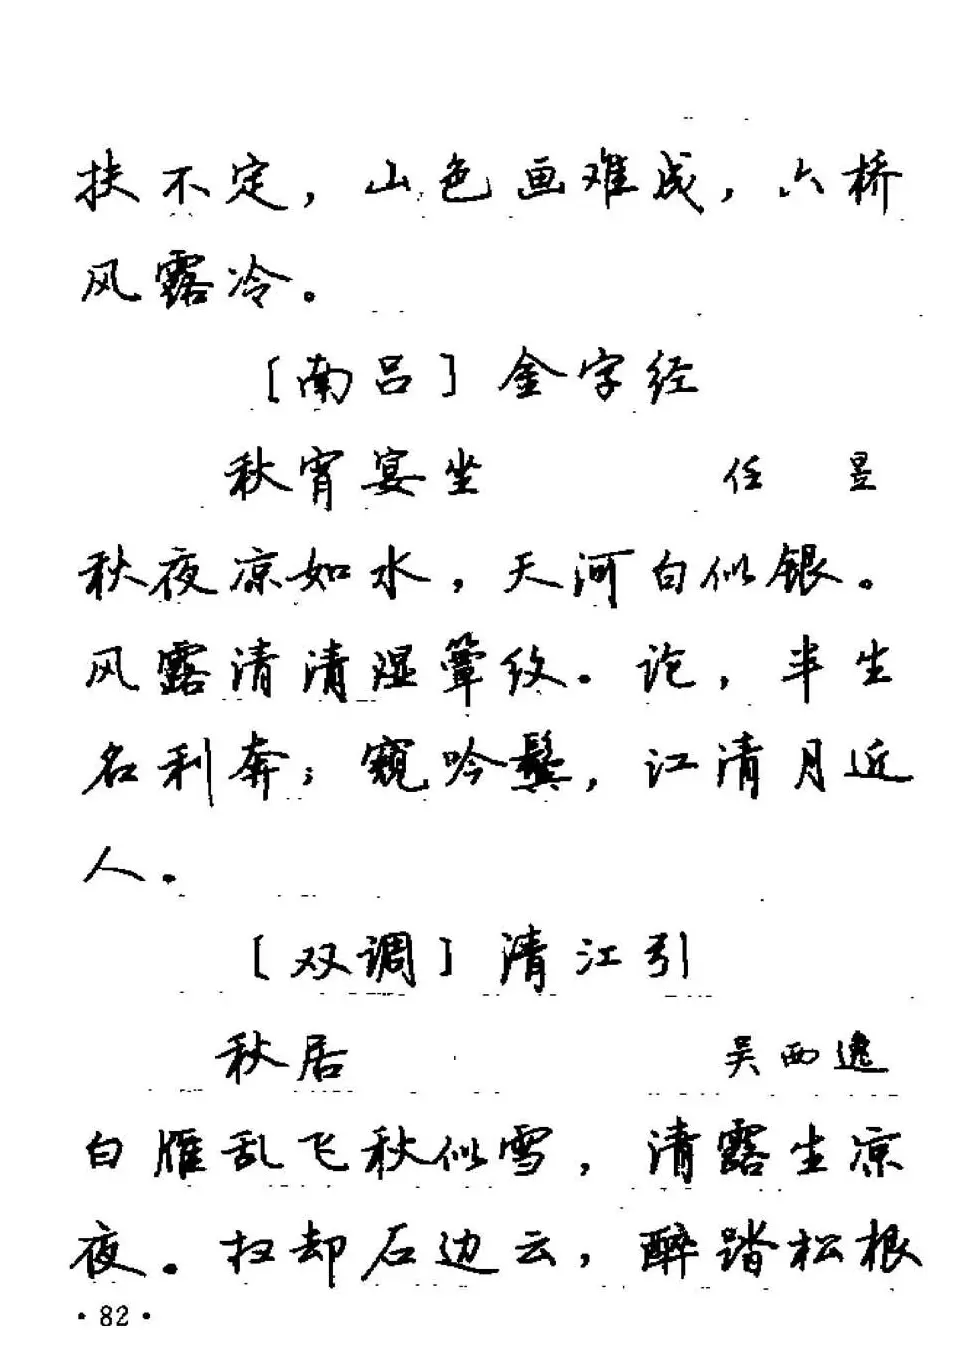 扶不定，山色画难成，六桥
风露冷。
［南吕］金字经
秋宵宴坐 任昱
秋夜凉如水，天河白似银。
风露清清湿簟纹。论，半生
名利奔；窥吟鬓，江清月近
人。
［双调］清江引
秋居 吴西逸
白雁乱飞秋似雪，清露生凉
夜。扫却石边云，醉踏松根
·82·